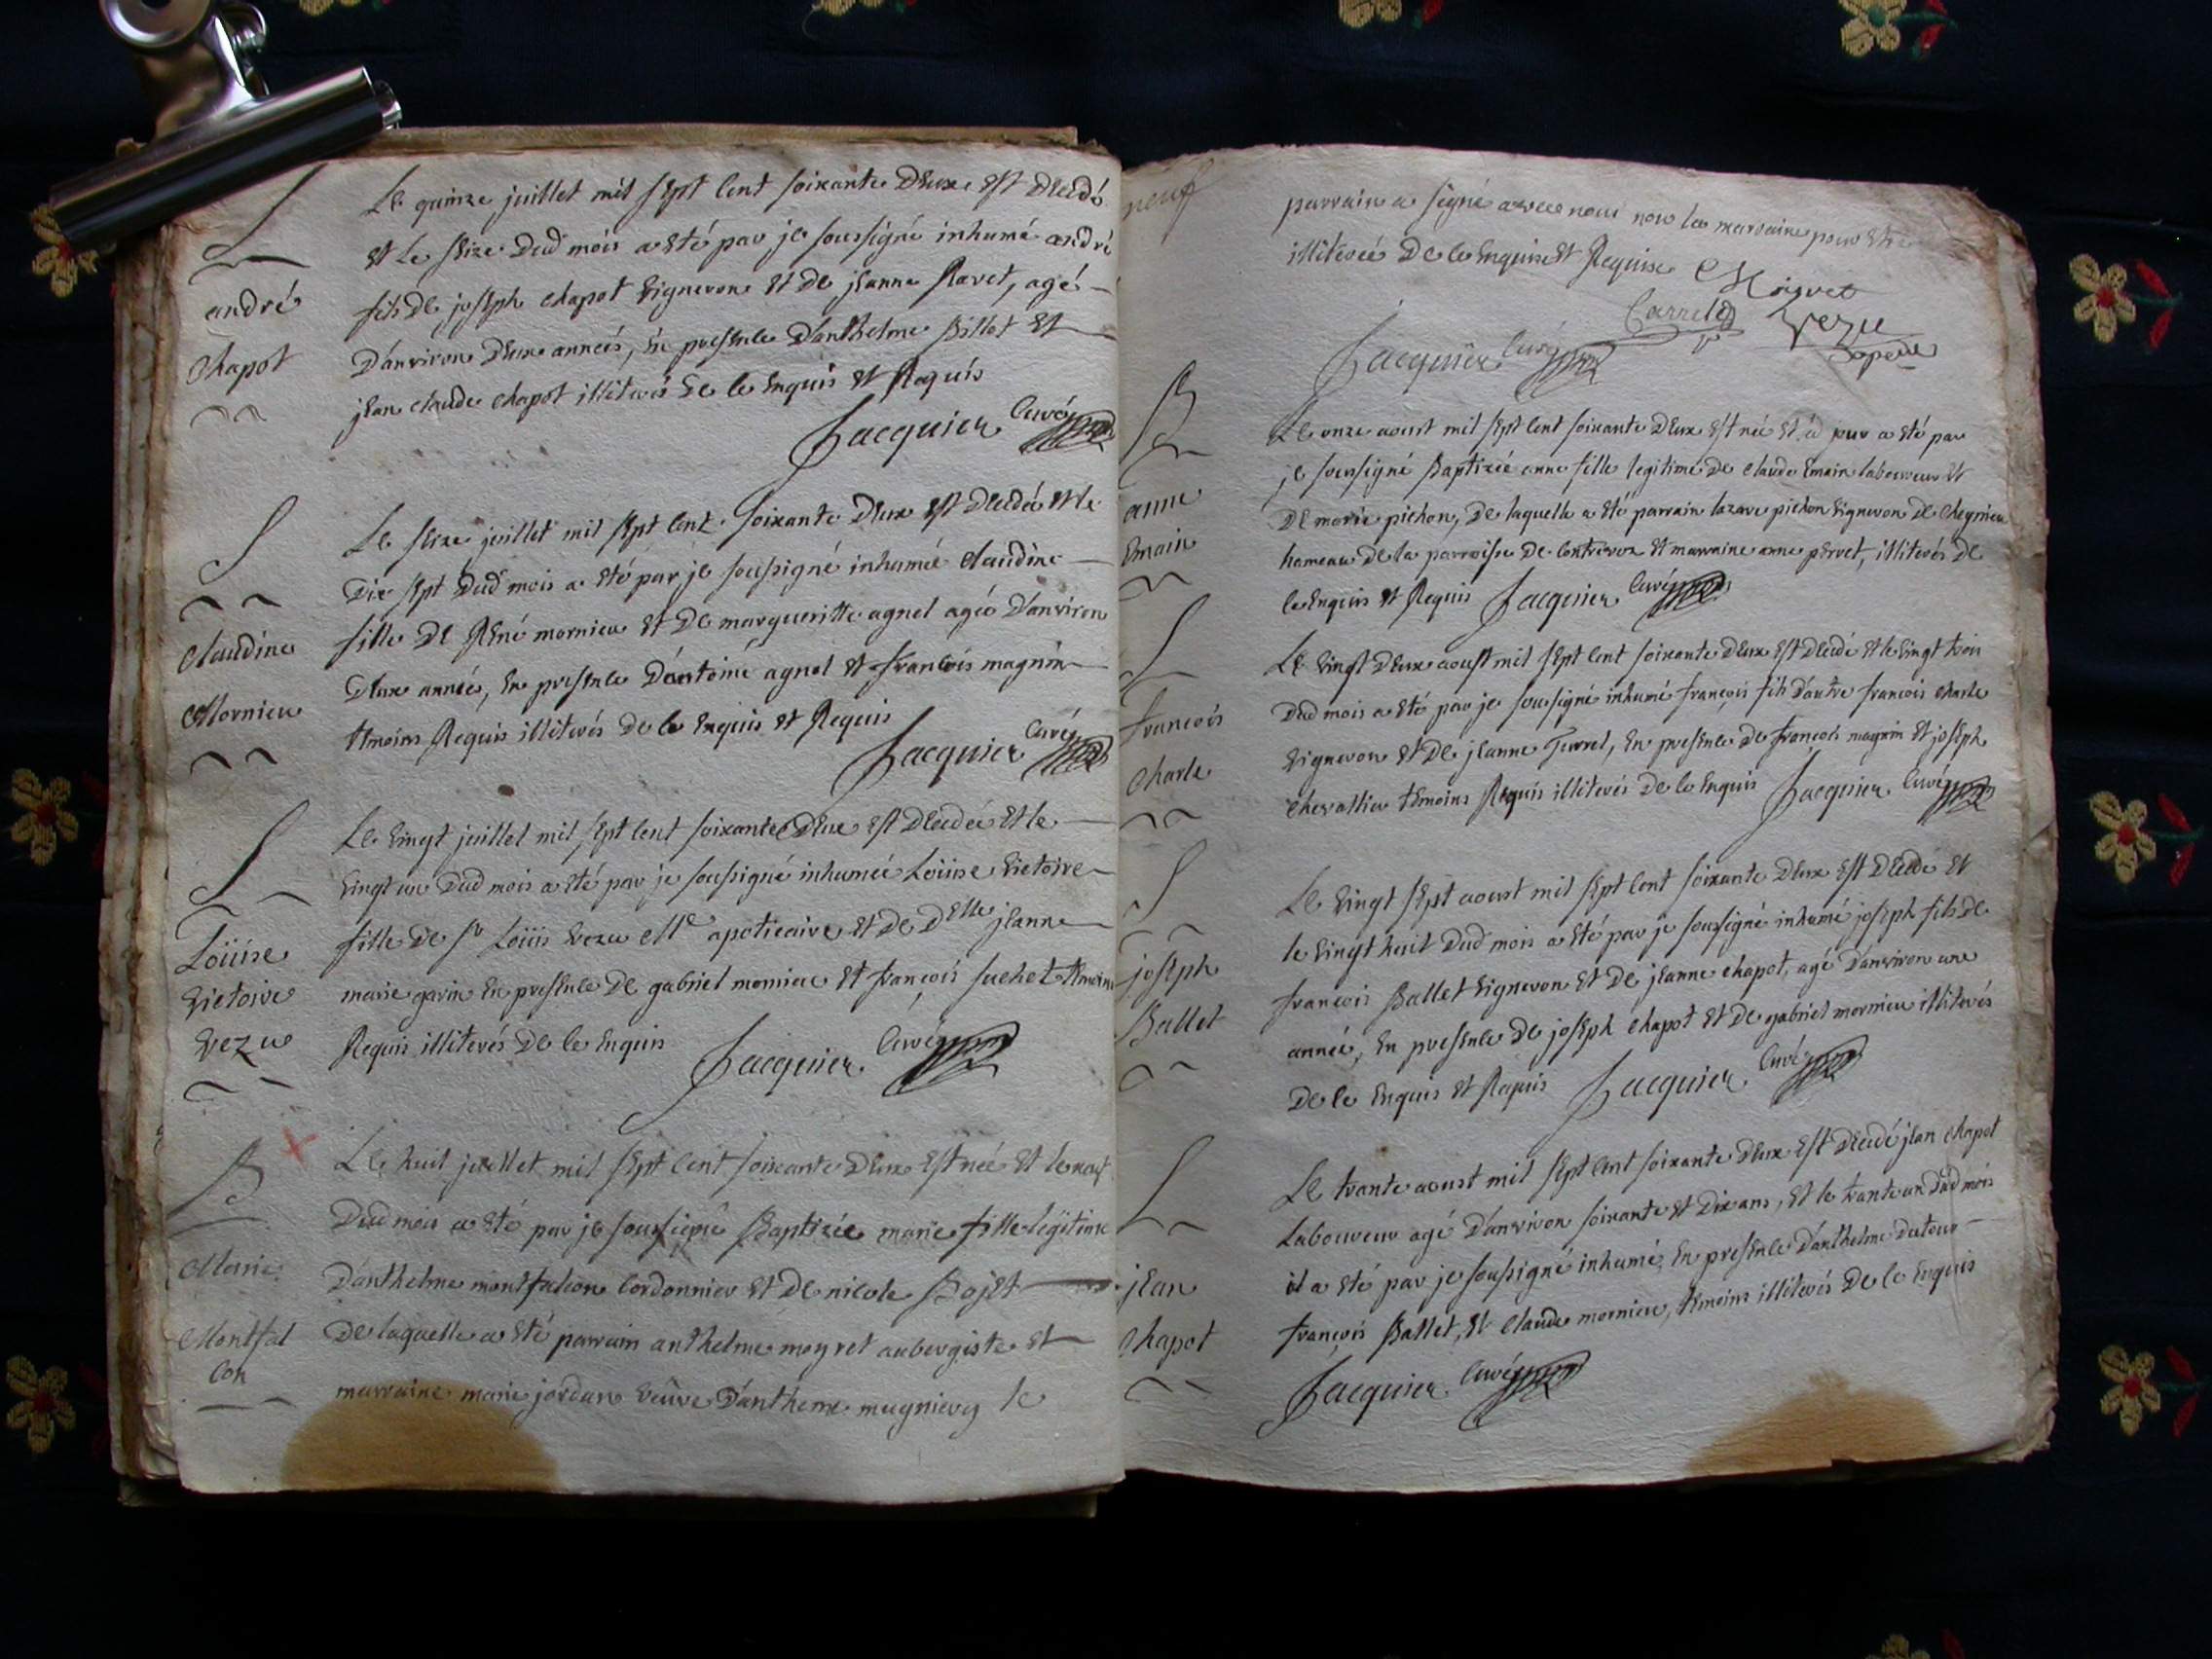 S
andré
chapot
Le quinze juillet mil sept cent soixante deux est decedé
et le seize dud mois a eté par je soussigné inhumé andré
fils de joseph chapot vigneron et de jeanne Ravet, agé
d'anviron deux années, en presence d'anthelme Billot et
jean claude chapot illiterés de ce enquis et Requis
Jacquier curé
S
claudine
Mornieu
Le seize juillet mil sept cent soixante deux est decedée et le
dix sept dud mois a eté par je soussigné inhumée claudine
fille de René mornieu et de margueritte agnel agée d'anviron
deux années, en presence d'antoine agnel et francois magnin
temoins Requis illiterés de ce enquis et Requis
Jacquier curé
S
Loüise
victoire
vezu
Le vingt juillet mil sept cent soixante deux est decedée et le
vingt un dud mois a eté par je soussigné inhumée Loüise victoire
fille de Sr Loüis vezu Me apoticaire et de Delle jeanne
marie gavin en presence de gabriel mornieu et françois suchet temoins
Requis illiterés de ce enquis
Jacquier curé
B
Marie
Montfal
con
Le huit juillet mil sept cent soixante deux est née et le neuf
dud mois a eté par je soussigné Baptizée marie fille legitime
d'anthelme montfalcon cordonnier et de nicole Bojet
de laquelle a eté parrain anthelme meyret aubergiste et
marraine marie jordan veüve d'antheme mugniery le
neuf
parrain a signé avec nous non la marraine pour etre
illiterée de ce enquise et Requise Meyret
Carrel vezu
Jacquier curé
B
anne
Emain
Le onze aoust mil sept cent soixante deux est née et a eté par
je soussigné Baptizée anne fille legitime de claude Emain laboureur et
de marie pichon, de laquelle a eté parrain lazare pichon vigneron de cheynieu
hameau de la parroisse de contrevoz et marraine anne pervet, illiterés de
ce enquis et Requis Jacquier curé
S
francois
charle
Le vingt deux aoust mil sept cent soixante deux est decedé et le vingt trois
dud mois a eté par je soussigné inhumé françois fils d'autre francois charle
vigneron et de jeanne Jurrel, en presence de françois magnin et joseph
chevallier temoins Requis illiterés de ce enquis Jacquier curé
S
joseph
Ballet
Le vingt sept aoust mil sept cent soixante deux est decedé et
le vingt huit dud mois a eté par je soussigné inhumé joseph fils de
francois Ballet vigneron et de jeanne chapot, agé d'anviron une
année, en presence de joseph chapot et de gabriel mornieu illiterés
de ce enquis et Requis Jacquier curé
S
jean
chapot
Le trante aoust mil sept cent soixante deux est decedé jean chapot
Laboureur agé d'anviron soixante et dix ans, et le trante un dud mois
il a eté par je soussigné inhumé, en presence d'anthelme dutour
françois Ballet, et claude mornieu, temoins illiterés de ce enquis
Jacquier curé